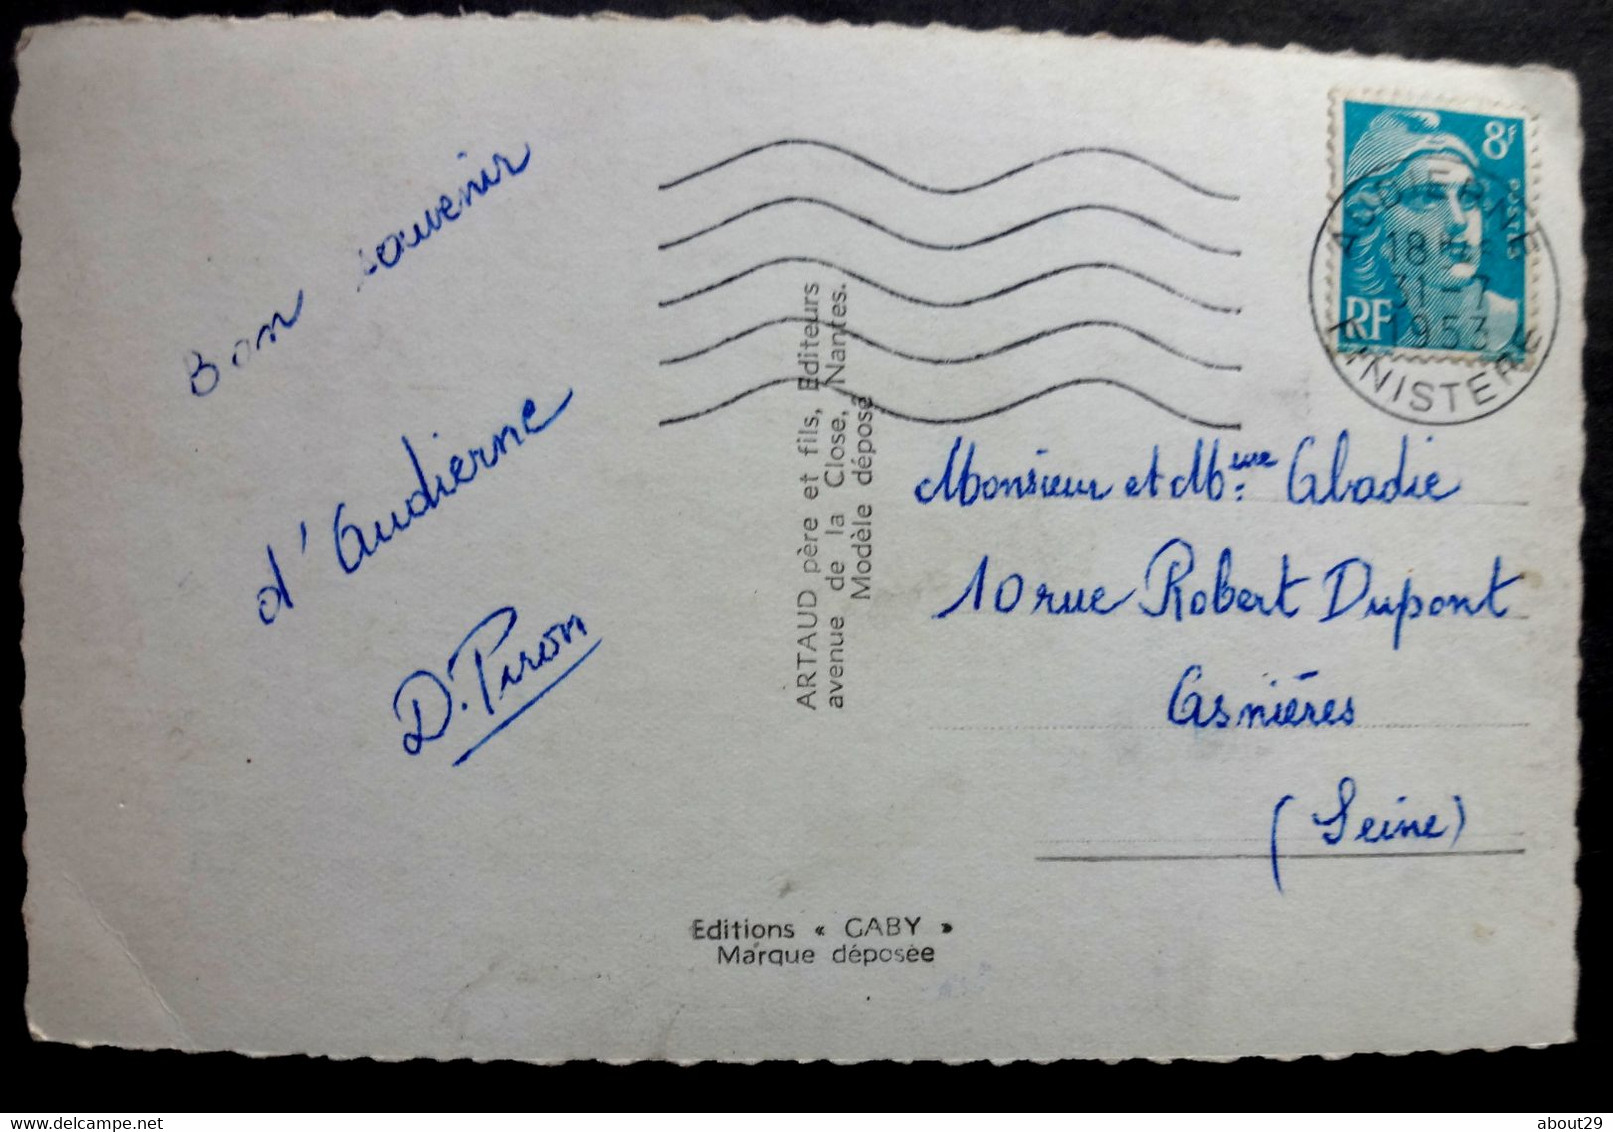 Bon souvenir
d'Audierne
D. Piron
ARTAUD père et fils, Editeurs
avenue de la Close, Nantes.
Modèle déposé
8F
POSTES
RF
AUDIERNE
18H
31-7
1953
FINISTERE
Monsieur et Mme. Abadie
10 rue Robert Dupont
Asnières
(Seine)
Editions « GABY »
Marque déposée
about29